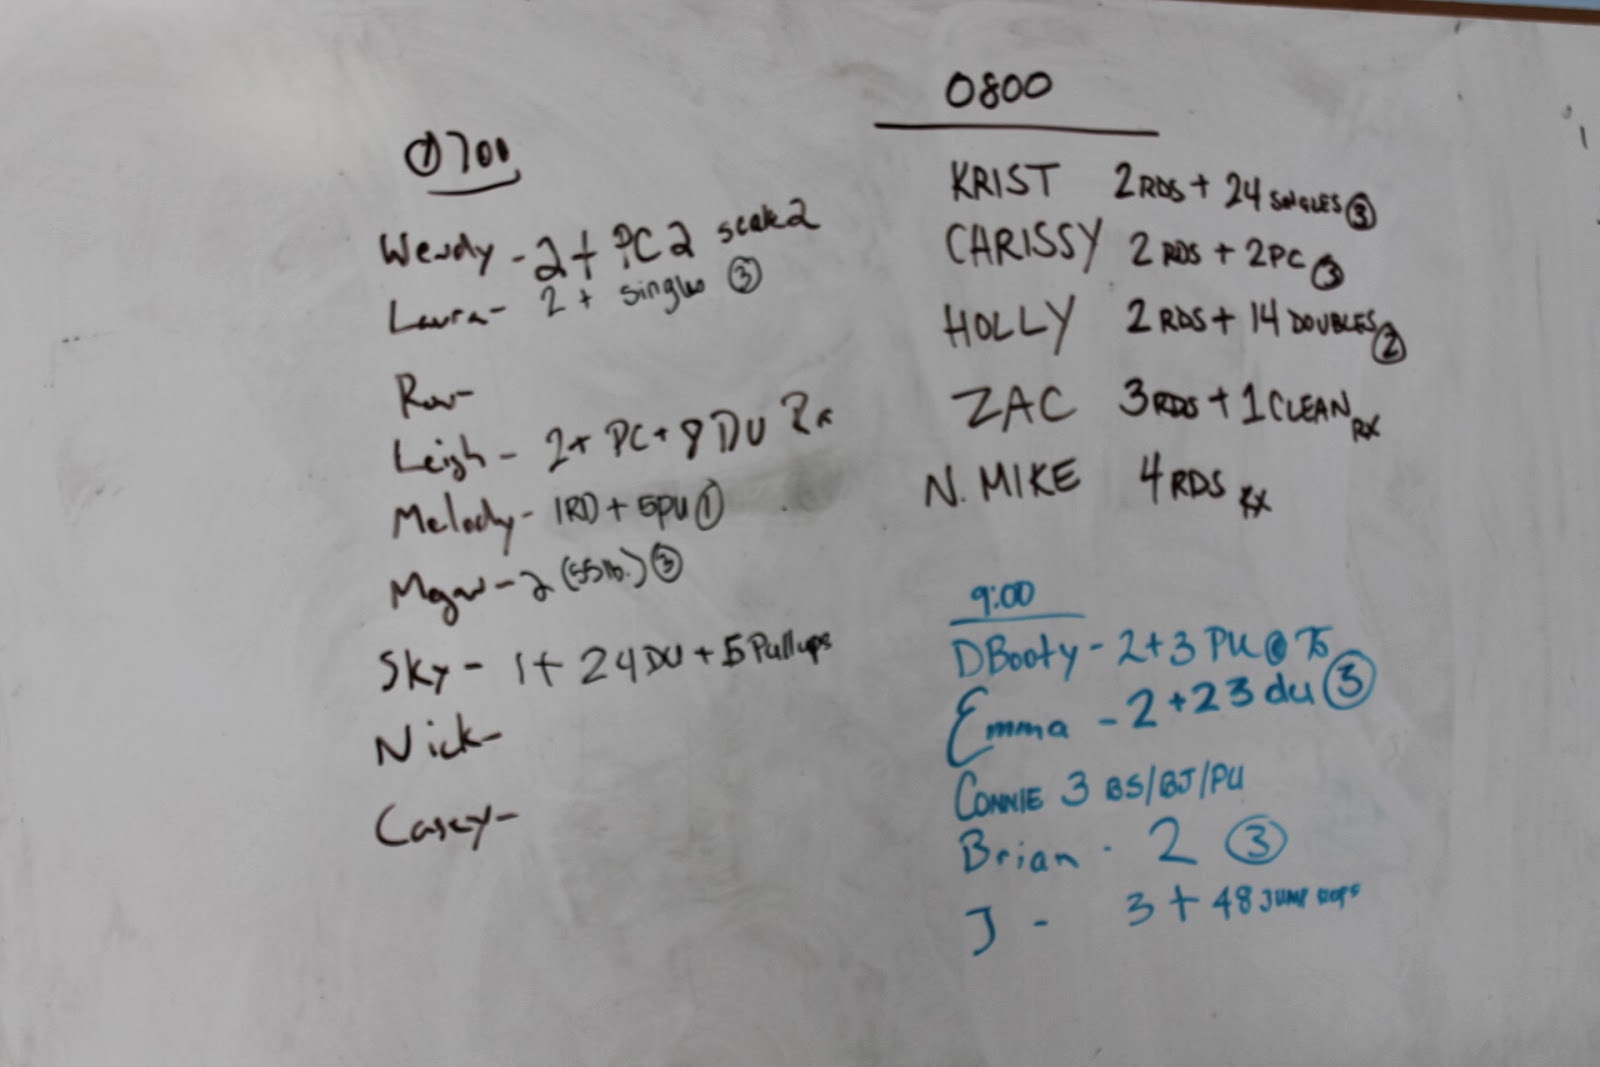 0700
Wendy - 2 + PC 2 scale 2
Laura - 2 + singles ③
-
Leigh - 2 + PC + 8 DU Rx
Melody - 1RD + 5PU ①
Megan - 2 (55lb.) ③
Sky - 1 + 24 DU + 5 Pullups
Nick -
Casey -
0800
KRIST 2 RDS + 24 SINGLES ③
CHRISSY 2 RDS + 2 PC ③
HOLLY 2 RDS + 14 DOUBLES ②
ZAC 3 RDS + 1 CLEAN RX
N. MIKE 4 RDS RX
9:00
DBooty - 2 + 3 PU @ 75
Emma - 2 + 23 du ③
CONNIE 3 BS/BJ/PU
Brian - 2 ③
J - 3 + 48 JUMP